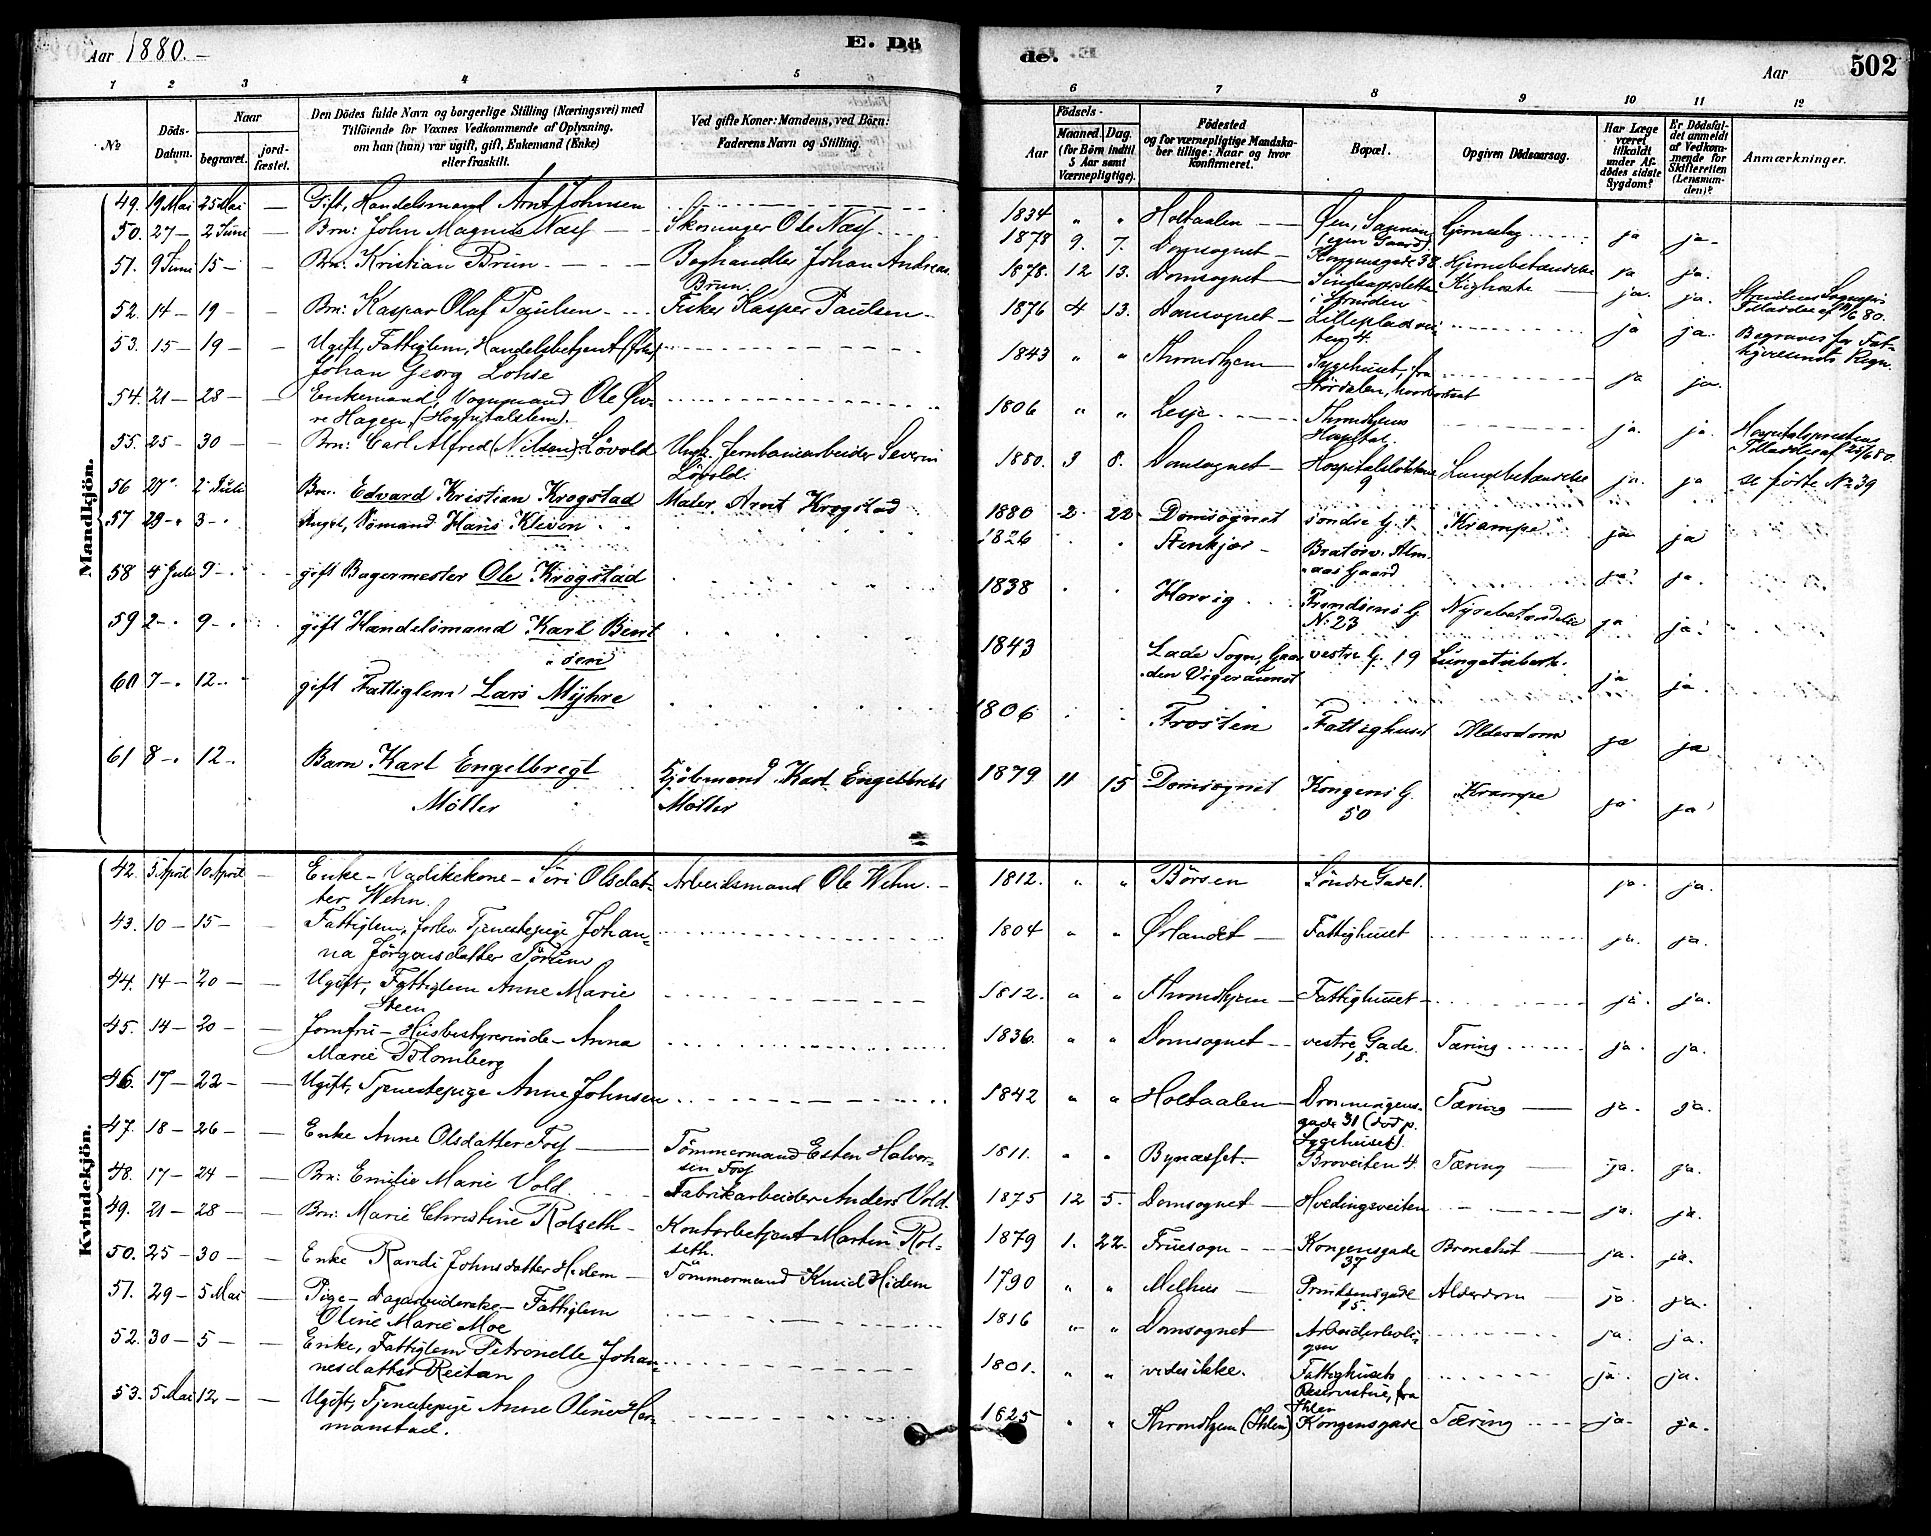 Aar 1880. –
E. Dö
de.
Aar
502
1 2 3 4 5 6 7 8 9 10 11 12
No
Döds-Datum.
Naar
begravet.
jord-fæstet.
Den Dödes fulde Navn og borgerlige Stilling (Næringsvei) med
Tilföiende for Voxnes Vedkommende af Oplysning.
om han (hun) var ugift, gift, Enkemand (Enke)
eller fraskilt.
Ved gifte Koner: Mandens, ved Börn:
Faderens Navn og Stilling.
Födsels-
Aar
Maaned. Dag.
(for Börn indtil
5 Aar samt
Værnepligtige).
Födested
og for værnepligtige Mandska-
ber tillige: Naar og hvor
konfirmeret.
Bopæl.
Opgiven Dödsaarsag.
Har Læge
været
tilkaldt
under Af-
dödes sidste
Sygdom?
Er Dödsfal-
det anmeldt
af Vedkom-
mende for
Skifteretten
(Lensman-
den)?
Anmærkninger.
Mandkjön.
49. 19 Mai 25 Mai — Gift, Handelsmand Arnt Johnsen 1834 " " Holtaalen — Øen, (egen Gaard) ja ja.
50. 27 — 2 Juni — Brn: John Magnus Næss — Skomager Ole Næss 1878 9. 7. Domsognet — Kongensgade 38. Hjernebetændelse ja ja.
51. 9 Juni 15 — Brn: Kristian Brun. — Boghandler Johan Andreas
Brun. 1878. 12 13. Domsognet — i Strinden Kighoste — ja. ja.
52. 14 — 19 — Brn: Kaspar Olaf Paulsen — Fisker Kasper Paulsen 1876 4 13. Domsognet — ja ja.
53. 15 — 19 — Ugift, Fattiglem, Handelsbetjent
Johan Georg Lohse 1843 " " Throndhjem — Sygehuset, fra
Størdalen, ja ja. Begraves for Fat-
54. 21 — 28 — Enkemand, Vognmand Ole Øv-
re Hagen, (Hospitalslem). 1806 " " Lesje. — Throndhjems
Hospital. ja. ja.
55. 25 — 30 — Brn: Carl Alfred (Nilsen) Lövold Jernbanearbeider Severin
Lövold. 1880. 3 8. Domsognet — Hospitalslökkene
9 Lungebetændelse ja. ja se förte No 39
56 27 " 2 Juli Brn. Edvard Kristian Krogstad Maler Arnt Krogstad 1880 2 22 Domsognet söndre G. 1 Krampe ja ja
57 29 — 3 — Sömand Hans Kleven 1826 Stenkjær — ja ja.
58 4 Juli 9 — gift Bagermester Ole Krogstad 1838 Horrig No 23 Nyrebetændelse ja ja.
59 2 — 9 — gift Handelsmand Karl Bent
sen 1843 Lade Sogn, vestre G. 19 ja ja.
60 7 — 12 — gift Fattiglem Lars Myhre 1806 Frosten Fattighuset Alderdom ja ja
61 8 — 12 — Barn Karl Engelbregt
Möller Kjöbmand Karl Engelbrekt
Möller 1879 11 15 Domsognet Kongens G.
50 Krampe ja ja
Kvindekjön.
42. 5 April 10 April — Enke – Vadskekone – Siri Olsdat-
ter Wehn. Arbeidsmand Ole Wehn. — 1812. " " Börsen Söndre Gade 1. ja. ja.
43. 10 — 15 — Fattiglem, forhv. Tjenestepige Johan-
na Jörgensdatter Törum 1804 " " Ørlandet — Fattighuset ja. ja.
44. 14 — 20 — Ugift, Fattiglem Anne Marie
Steen 1812. " " Throndhjem — Fattighuset — ja. ja.
45. 14 — 20 — Jomfru – Husbestyrerinde – Anna
Marie Blomberg 1836. " " Domsognet — vestre Gade.
18. Tæring ja. ja.
46. 17 — 22 — Ugift, Tjenestepige Anne Johnsen 1842 " " Holtaalen — Dronningens-
gade 31 (död p.
Sygehuset). Tæring — ja. ja.
47. 18 — 26 — Enke Anne Olsdatter Foss — Tömmermand Esten Halvor-
sen Foss 1811. " " Bynæsset. Broveiten 4. Tæring — ja. ja.
48. 17 — 24 — Brn: Emilie Marie Vold Fabrikarbeider Anders Vold. 1875 12 5. Domsognet — Hvedingsveiten ja. ja.
49. 21 — 28 — Brn: Marie Christine Rolseth — Kontorbetjent Martin Rol-
seth. 1879 1. 22. Fruesogn — Kongensgade
37 Bronchit — ja. ja.
50. 25 — 30 — Enke Randi Johnsdatter Hidem — Tömmermand Knud Hidem 1790 " " Melhus — Prindsensgade
15. Alderdom — ja. ja.
51. 29 — 5 Mai — Pige – Dagarbeiderske – Fattiglem
Oline Marie Moe 1816 " " Domsognet — Arbeiderboli-
gen ja. ja.
52. 30 — 5 — Enke, Fattiglem Petronelle Johan-
nesdatter Reitan 1801. " " vides ikke. Fattighusets
Reservestue, fra
Ihlen ja. ja.
53. 5 Mai 12 — Ugift, Tjenestepige Anne Oline Her-
manstad. 1825 " " Throndhjem (Ihlen) Kongensgade Tæring ja. ja.